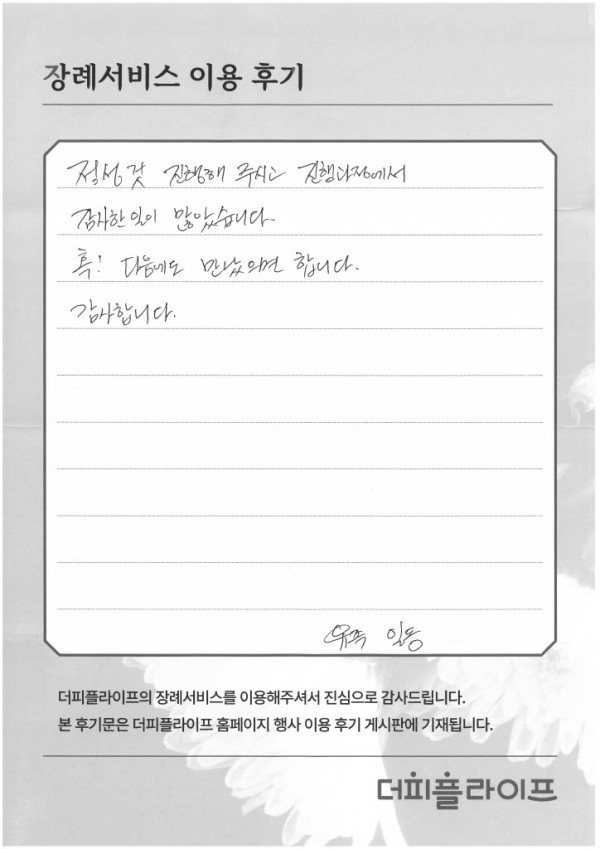 장례서비스 이용 후기
정성껏 진행해 주시고 진행과정에서
감사한 일이 많았습니다.
혹! 다음에도 만났으면 합니다.
감사합니다.
유족 일동
더피플라이프의 장례서비스를 이용해주셔서 진심으로 감사드립니다.
본 후기문은 더피플라이프 홈페이지 행사 이용 후기 게시판에 기재됩니다.
더피플라이프